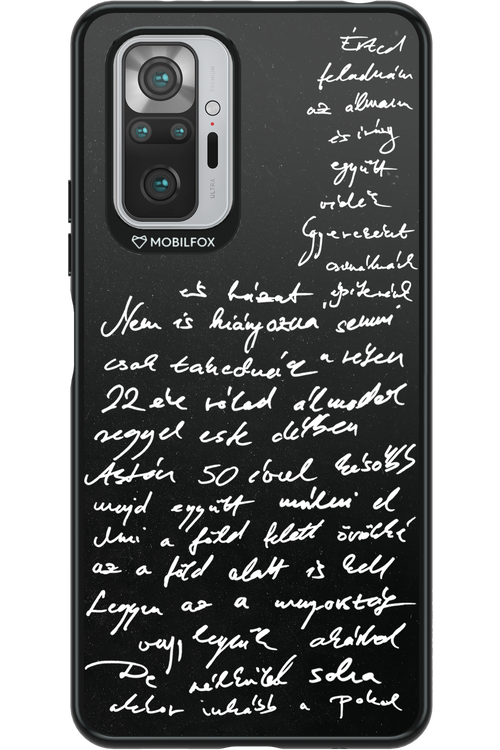 ULTRA
MOBILFOX
Érted
feladnám
az álmaim
és így
együtt
vidék
Gyerekeket
csinálnánk
és házat építenénk
Nem is hiányozna semmi
csak takednánk a
22 éve rólad álmodok
reggel este délben
Aztán 50 évvel később
majd együtt múlni el
Ami a föld felett örökké
az a föld alatt is kell
Legyen az a mennyország
vagy legyünk akárhol
De nélküled soha
akkor inkább a pokol